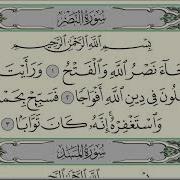 سُورَةُ النَّصْرِ
بِسْمِ اللَّهِ الرَّحْمَٰنِ الرَّحِيمِ
جَآءَ نَصْرُ اللَّهِ وَالْفَتْحُ ١ وَرَأَيْتَ
لُونَ فِي دِينِ اللَّهِ أَفْوَاجًا ٢ فَسَبِّحْ بِحَمْ
وَاسْتَغْفِرْهُ إِنَّهُ كَانَ تَوَّابًا ٣
سُورَةُ الْمَسَدِ